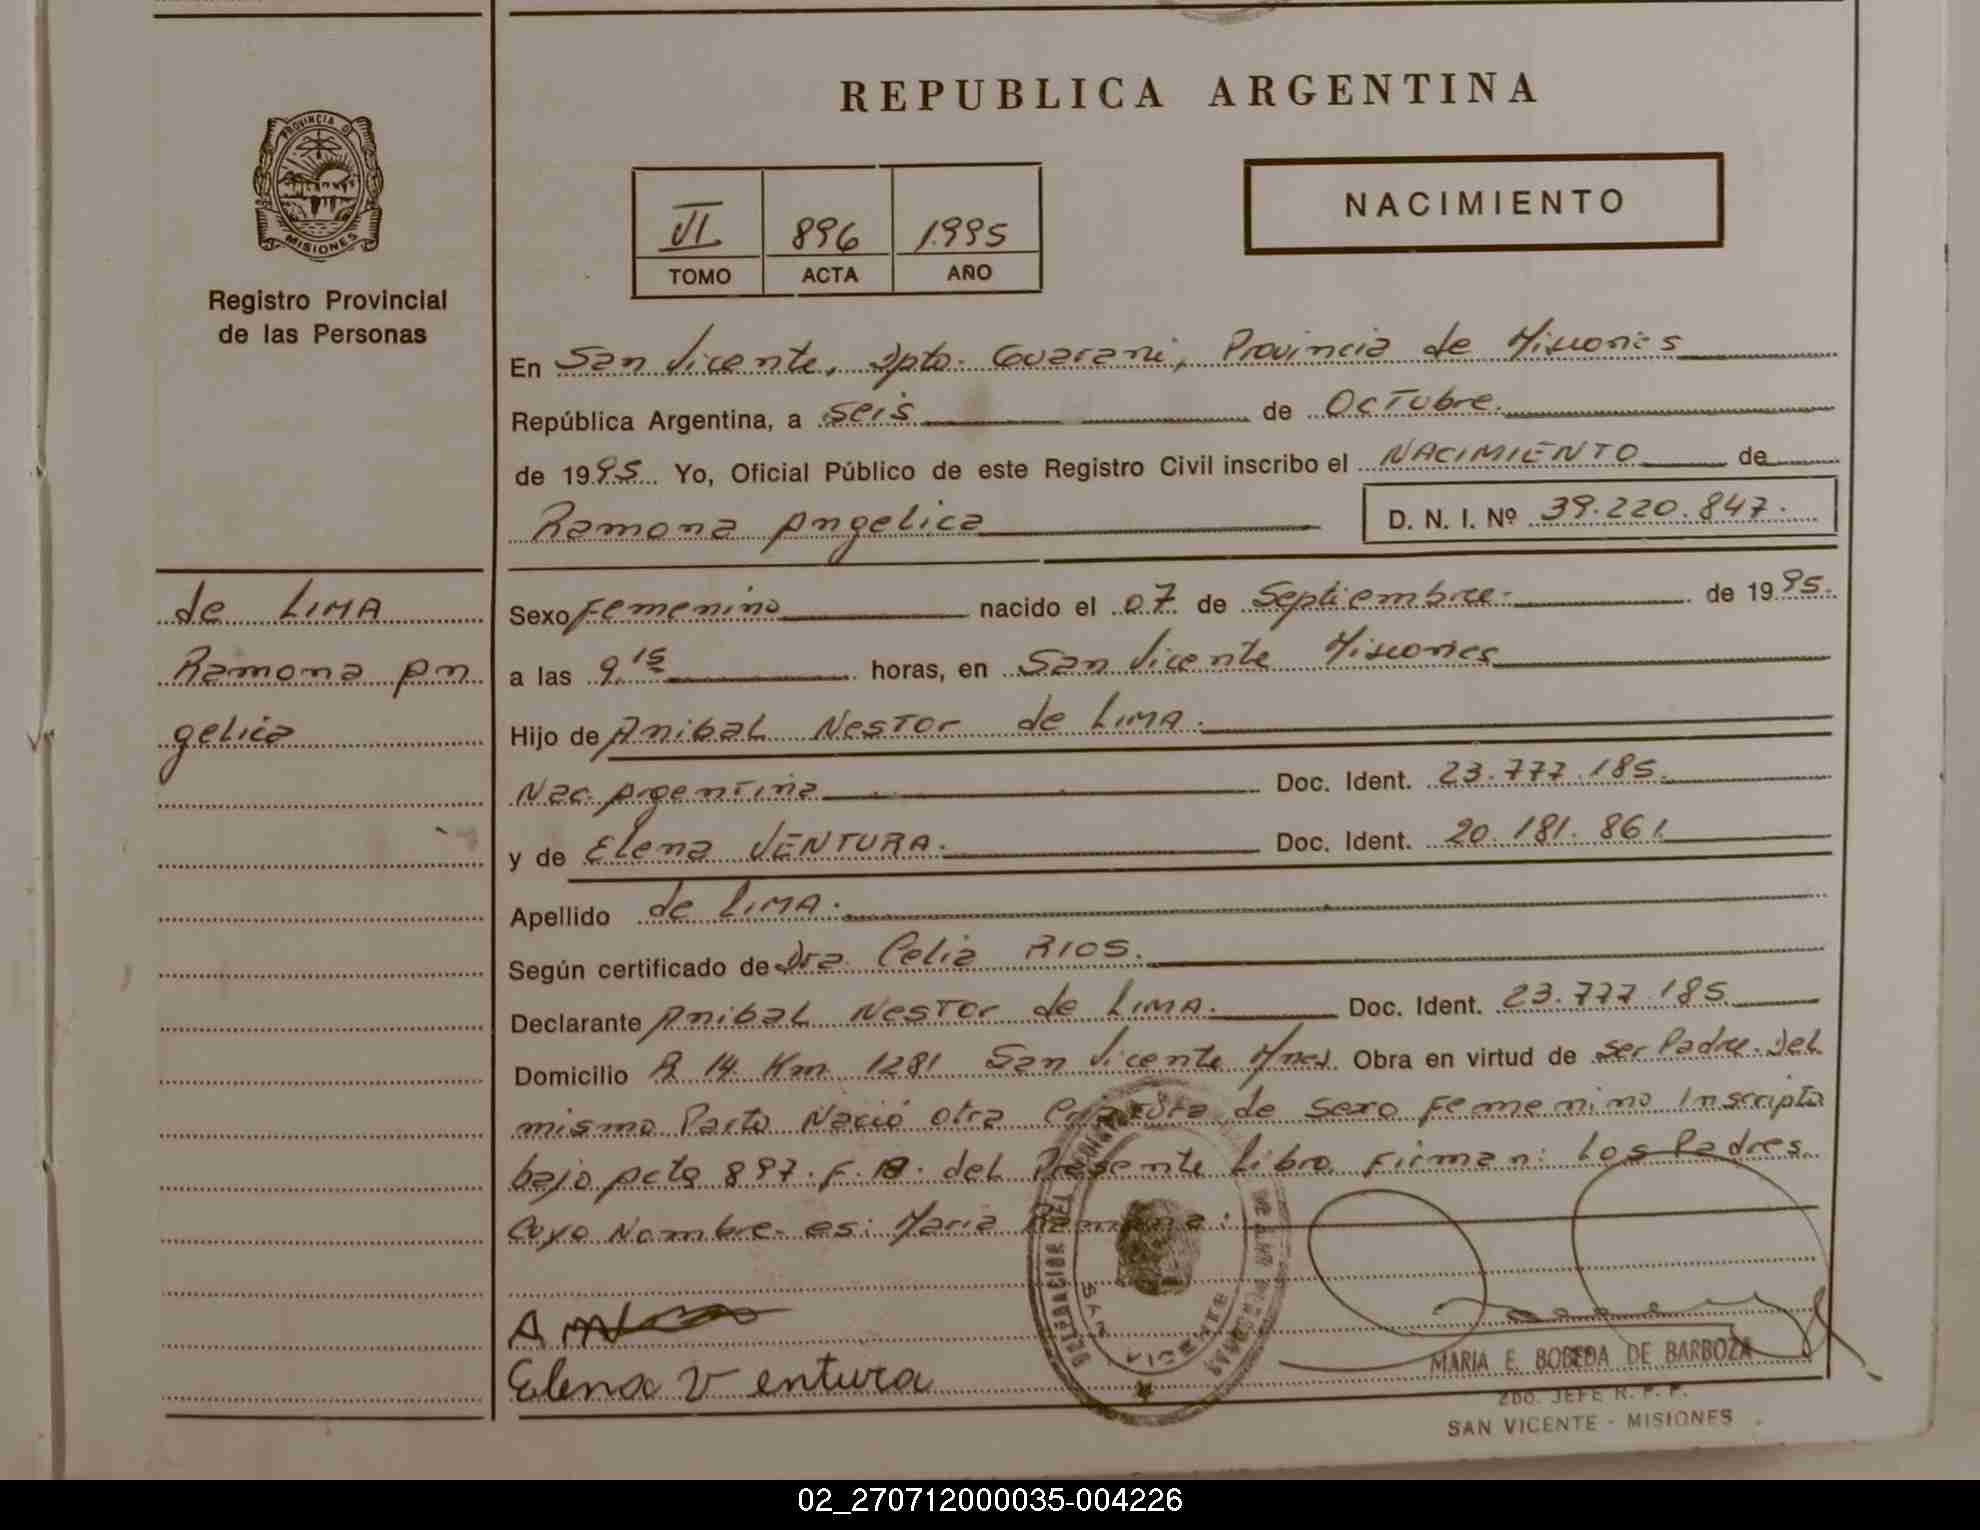 REPUBLICA ARGENTINA
PROVINCIA DE
MISIONES
Registro Provincial
de las Personas
VI 896 1995
TOMO ACTA AÑO
NACIMIENTO
En San Vicente, Dpto. Guarani, Provincia de Misiones
República Argentina, a seis de Octubre.
de 1995 Yo, Oficial Público de este Registro Civil inscribo el NACIMIENTO de
Ramona Angelica
D. N. I. Nº 39.220.847.
de LIMA
Ramona An
gelica
Sexo Femenino nacido el 07 de Septiembre. de 1995.
a las 9 15 horas, en San Vicente Misiones
Hijo de Anibal Nestor de LIMA.
Nac. Argentina Doc. Ident. 23.777.185.
y de Elena VENTURA. Doc. Ident. 20.181.861
Apellido de LIMA.
Según certificado de Dra. Celia RIOS.
Declarante Anibal Nestor de LIMA. Doc. Ident. 23.777.185
Domicilio R 14 Km 1281 San Vicente Mnes. Obra en virtud de ser Padre. Del
mismo Parto Nació otra de sexo Femenino Inscripta
bajo Acta 897. F. del Presente Libro Firman: Los Padres.
Cuyo Nombre es: Maria Ramona.
Elena Ventura
DELEGACION DEL REGISTRO
SAN VICENTE
MARIA E. BOBEDA DE BARBOZA
2DO. JEFE R. P. P.
SAN VICENTE - MISIONES
02_270712000035-004226